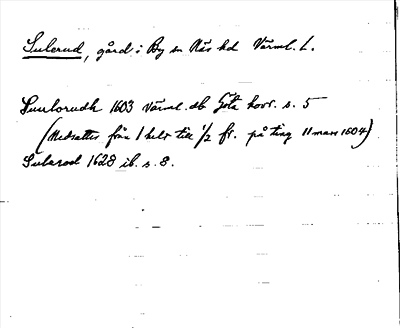 Sulerud, gård i By sn Näs hd Värml. l.
Suulorudh 1603 Värml. db Göta hovr. s. 5
(Nedsattes från 1 helt till 1/2 fr. på ting 11 mars 1604)
Sulerod 1628 ib. s. 8.